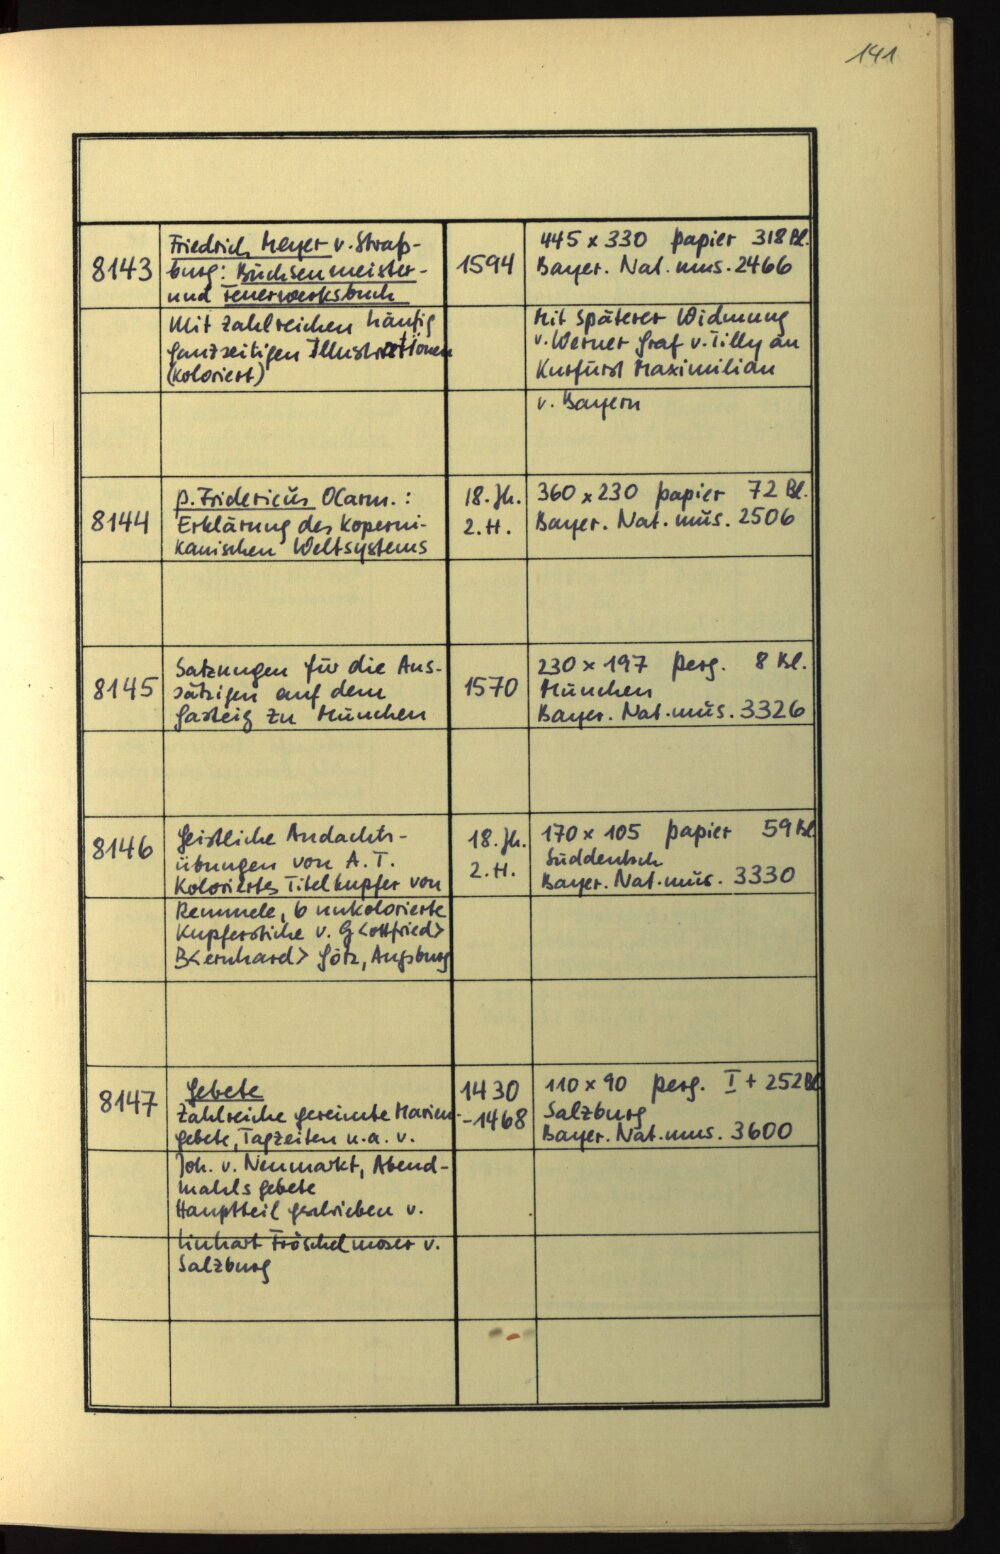 141
8143
Friedrich Meyer v. Straß-
burg: Büchsenmeister-
und Feuerwerksbuch
Mit zahlreichen häufig
ganzseitigen Illustrationen
(koloriert)
1594
445 x 330 Papier 318 Bl.
Bayer. Nat. mus. 2466
Mit späterer Widmung
v. Werner Graf v. Tilly an
Kurfürst Maximilian
v. Bayern
8144
P. Fridericus OCarm. :
Erklärung des Koperni-
kanischen Weltsystems
18. Jh.
2. H.
360 x 230 Papier 72 Bl.
Bayer. Nat. mus. 2506
8145
Satzungen für die Aus-
sätzigen auf dem
Gasteig zu München
1570
230 x 197 Perg. 8 Bl.
München
Bayer. Nat. mus. 3326
8146
Geistliche Andachts-
übungen von A. T.
Koloriertes Titelkupfer von
Remmele, 6 unkolorierte
Kupferstiche v. G<ottfried>
B<ernhard> Götz, Augsburg
18. Jh.
2. H.
170 x 105 Papier 59 Bl
Süddeutsch
Bayer. Nat. mus. 3330
8147
Gebete
Zahlreiche gereimte Marien-
gebete, Tagzeiten u. a. v.
Joh. v. Neumarkt, Abend-
mahlsgebete
Hauptteil geschrieben v.
Linhart Fröschelmoser v.
Salzburg
1430
-1468
110 x 90 Perg. I + 252 Bl
Salzburg
Bayer. Nat. mus. 3600